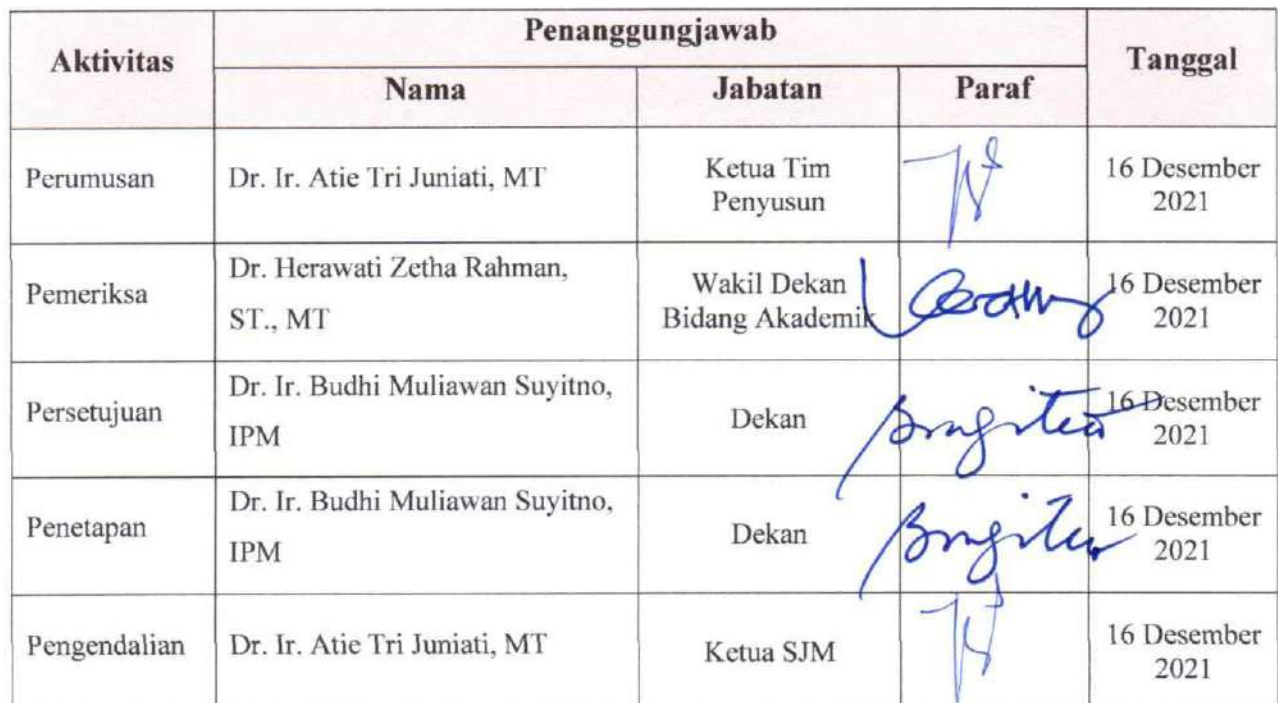 Aktivitas
Penanggungjawab
Tanggal
Nama
Jabatan
Paraf
Perumusan
Dr. Ir. Atie Tri Juniati, MT
Ketua Tim
Penyusun
16 Desember
2021
Pemeriksa
Dr. Herawati Zetha Rahman,
ST., MT
Wakil Dekan
Bidang Akademik
16 Desember
2021
Persetujuan
Dr. Ir. Budhi Muliawan Suyitno,
IPM
Dekan
16 Desember
2021
Penetapan
Dr. Ir. Budhi Muliawan Suyitno,
IPM
Dekan
16 Desember
2021
Pengendalian
Dr. Ir. Atie Tri Juniati, MT
Ketua SJM
16 Desember
2021